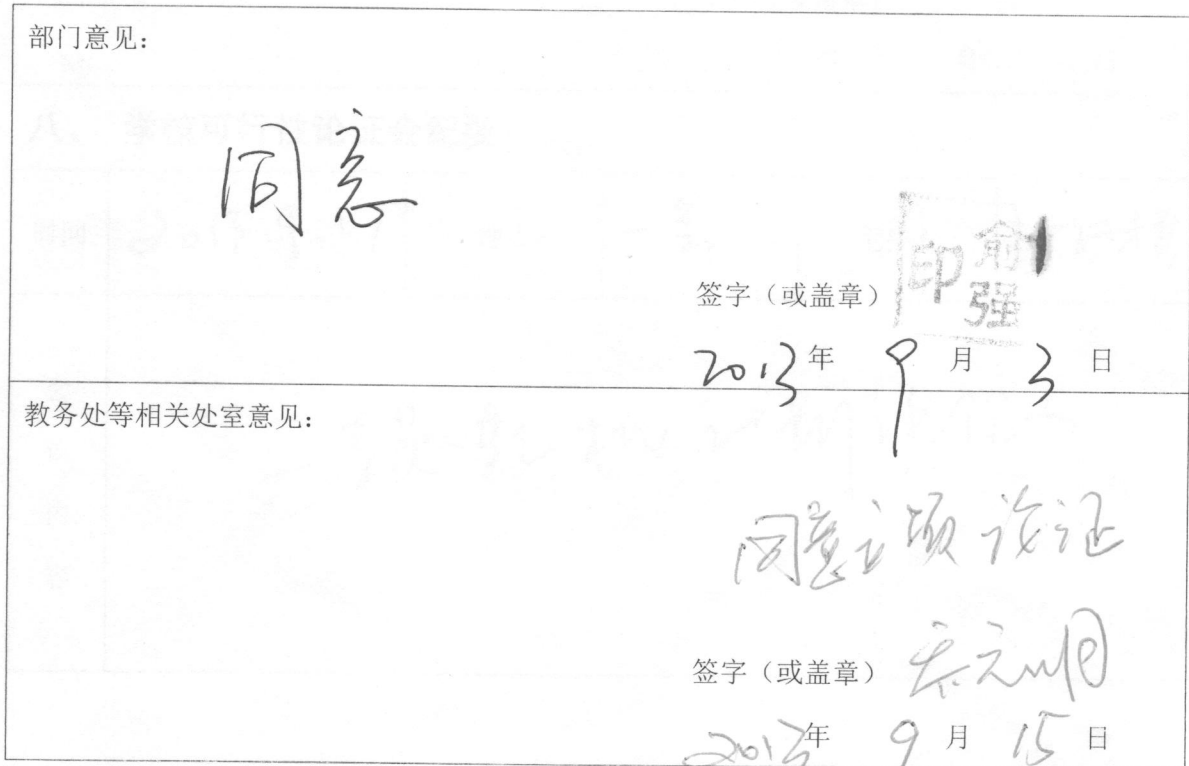 部门意见：
同意
签字（或盖章） 俞强印
2013年 9月 3日
教务处等相关处室意见：
同意立项论证
签字（或盖章）
2013年 9月 15日